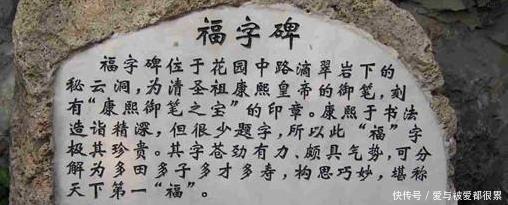 福字碑
福字碑位于花园中路滴翠岩下的
秘云洞，为清圣祖康熙皇帝的御笔，刻
有“康熙御笔之宝”的印章。康熙于书法
造诣精深，但很少题字，所以此“福”字
极其珍贵。其字苍劲有力、颇具气势，可分
解为多田多子多才多寿，构思巧妙，堪称
天下第一“福”。
快传号/爱与被爱都很累